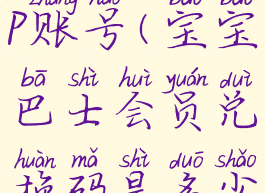 zhàng hào bǎo bǎo
P账号(宝宝
bā shì huì yuán duì
巴士会员兑
huàn mǎ shì duō shǎo
换码是多少